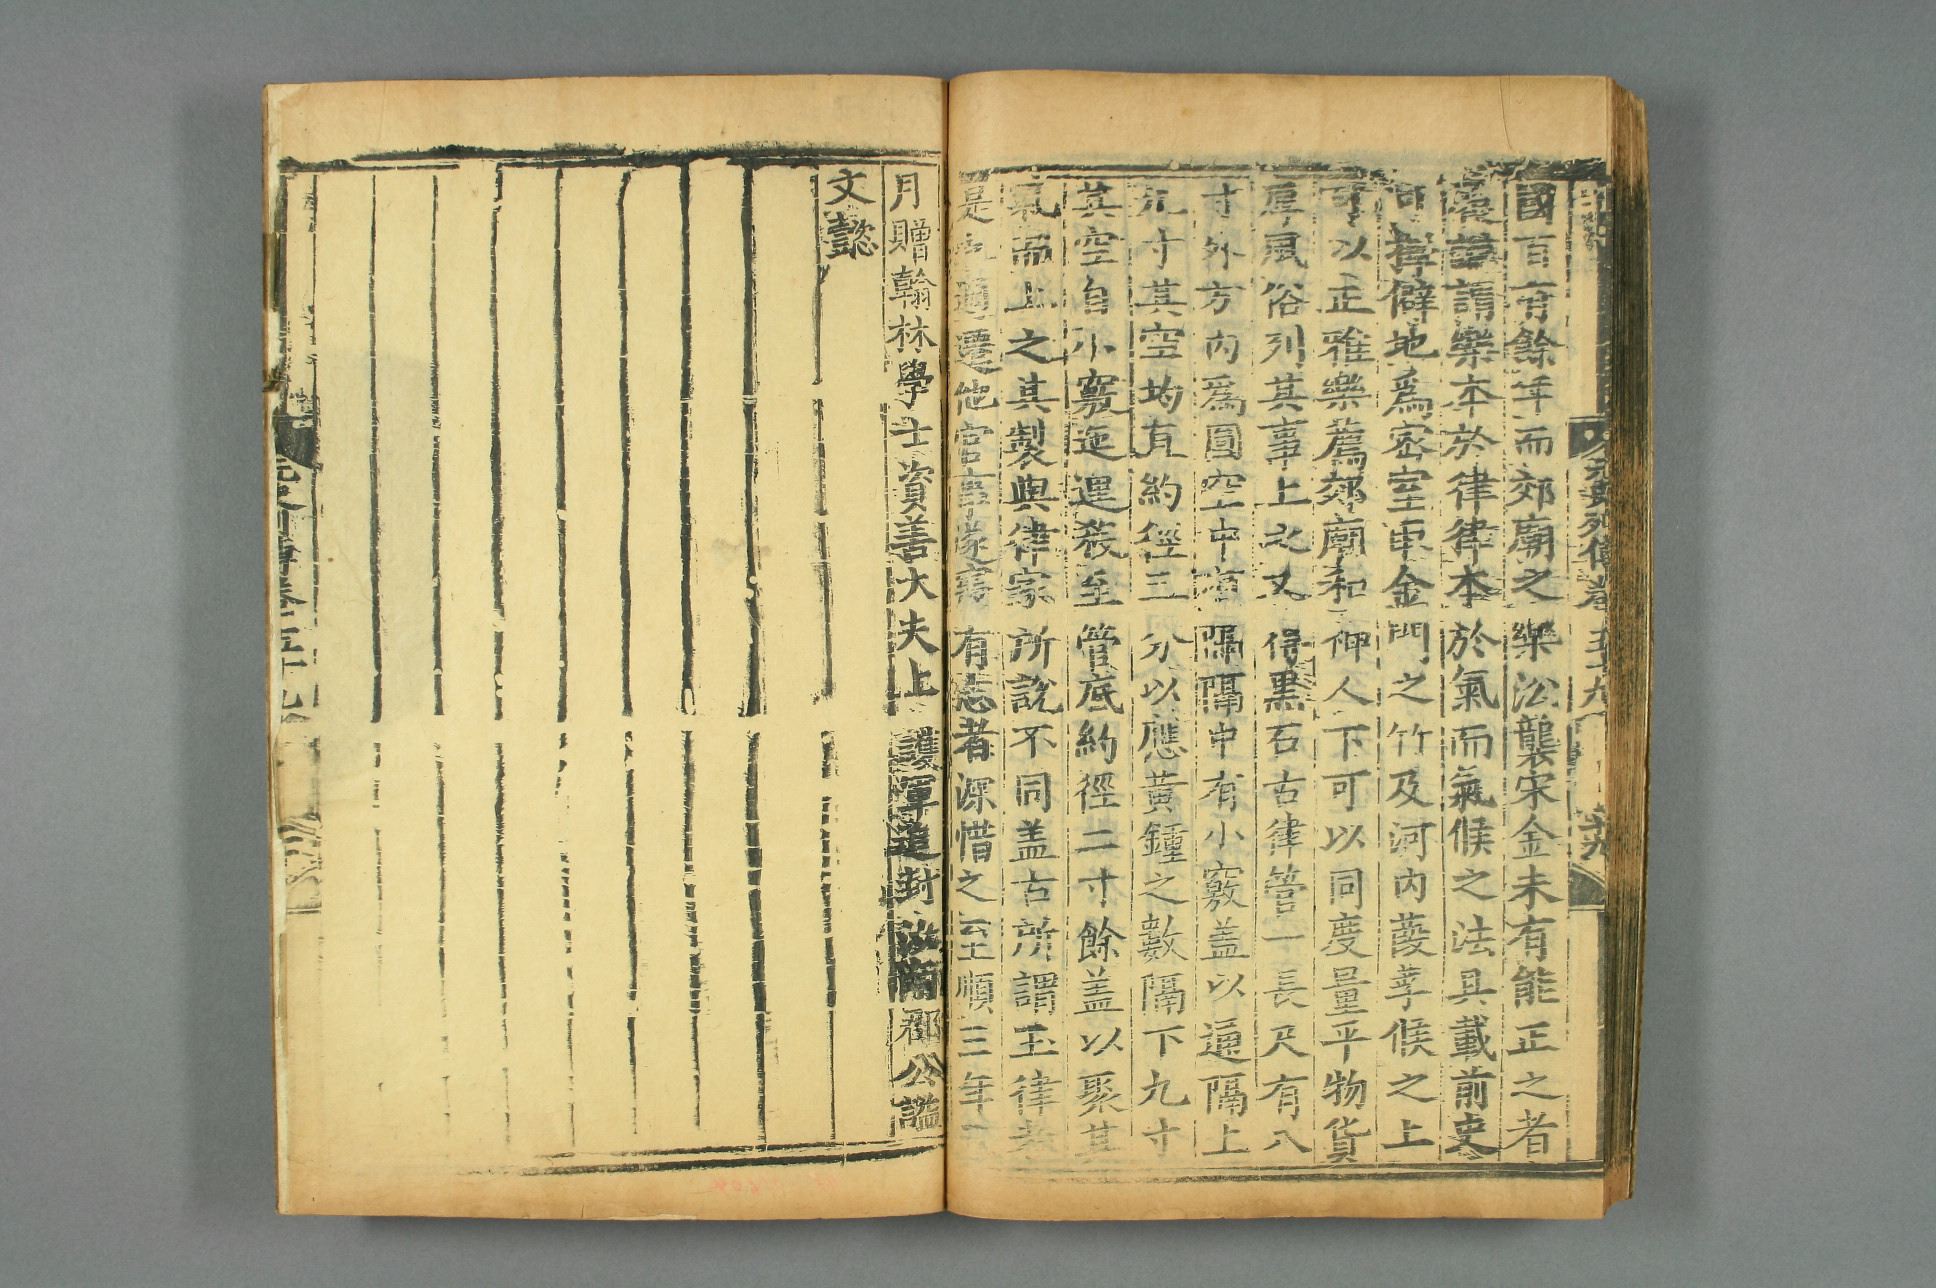 國百有餘年而郊廟之樂沿襲宋金未有能正之者
濩謂樂本於律律本於氣而氣候之法具載前史
可擇僻地爲密室取金門之竹及河內葭莩候之上
可以正雅樂薦郊廟和神人下可以同度量平物貨
厚風俗列其事上之又得黑石古律管一長尺有八
寸外方內爲圓空中有隔隔中有小竅蓋以通隔上
九寸其空均直約徑三分以應黃鍾之數隔下九寸
其空自小竅迤邐殺至管底約徑二寸餘蓋以聚其
氣而上之其製與律家所說不同蓋古所謂玉律者
是也適遷他官事遂寢有志者深惜之至順三年
月贈翰林學士資善大夫上護軍追封 南郡公謚
文懿
元史列傳卷五十九
元史列傳卷五十九